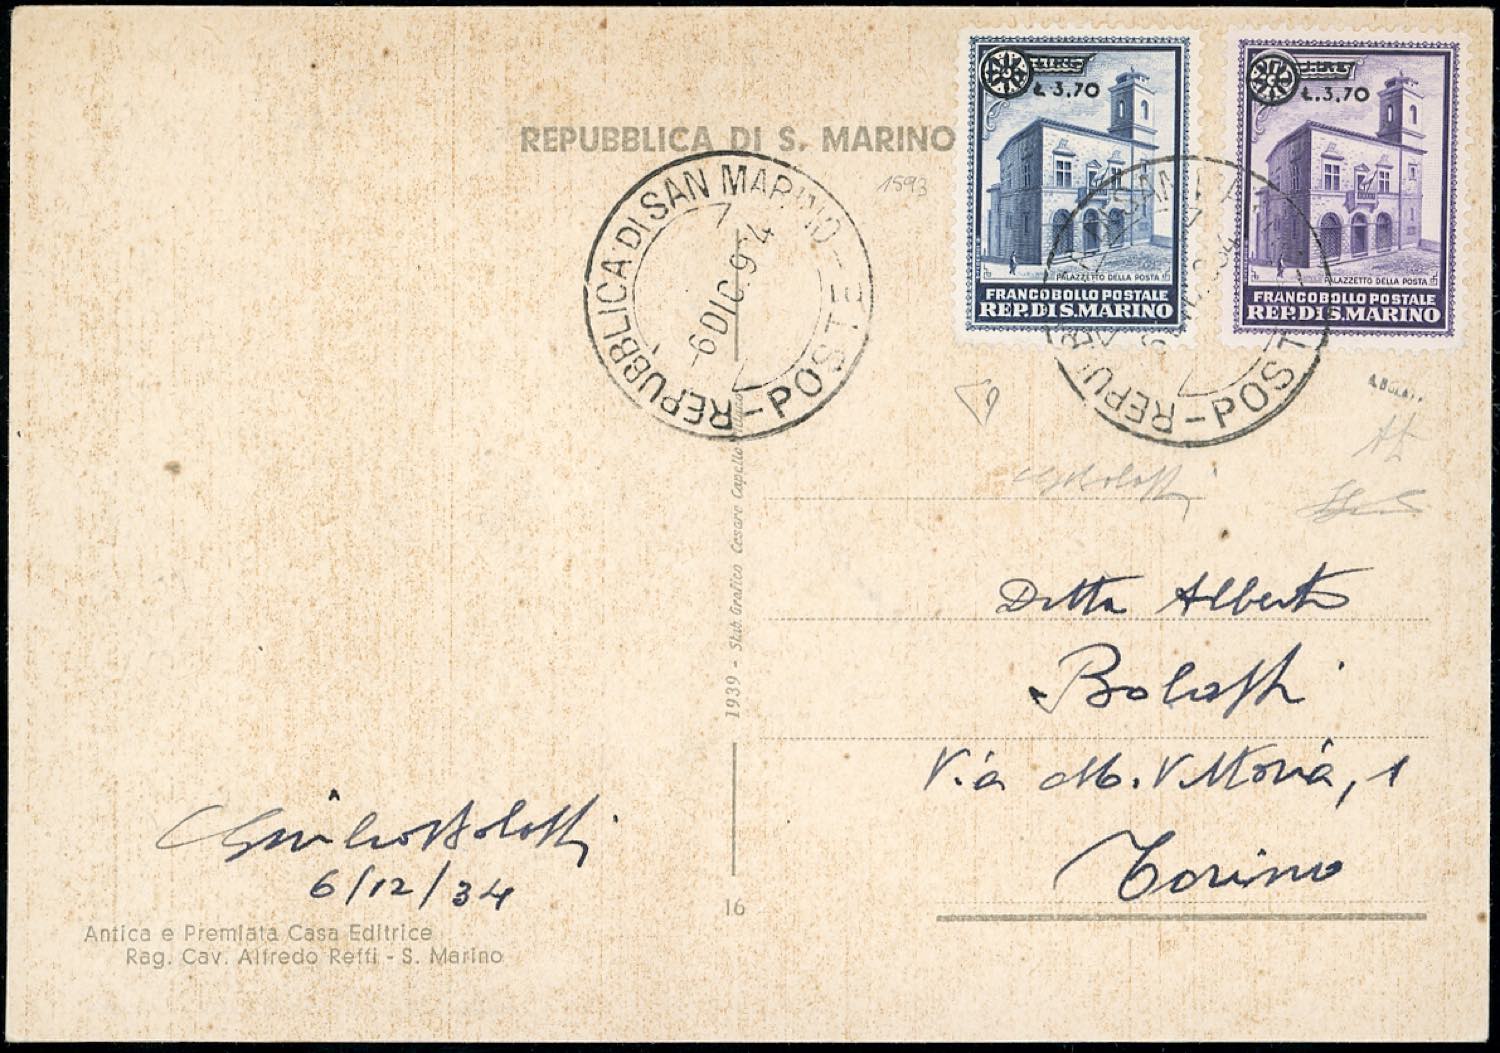 Ł 3,70
Ł. 3,70
REPUBBLICA DI S. MARINO
1593
REPUBBLICA DI SAN MARINO - POSTE -
6 DIC. 934
PALAZZETTO DELLA POSTA
FRANCOBOLLO POSTALE
REP. DI S. MARINO
PALAZZETTO DELLA POSTA
FRANCOBOLLO POSTALE
REP. DI S. MARINO
A. BOLAFFI
Ditta Alberto
Bolaffi
Via M. Vittoria, 1
Torino
1939 - Stab. Grafico Cesare Capello
Giulio Bolaffi
6/12/34
16
Antica e Premiata Casa Editrice
Rag. Cav. Alfredo Reffi - S. Marino